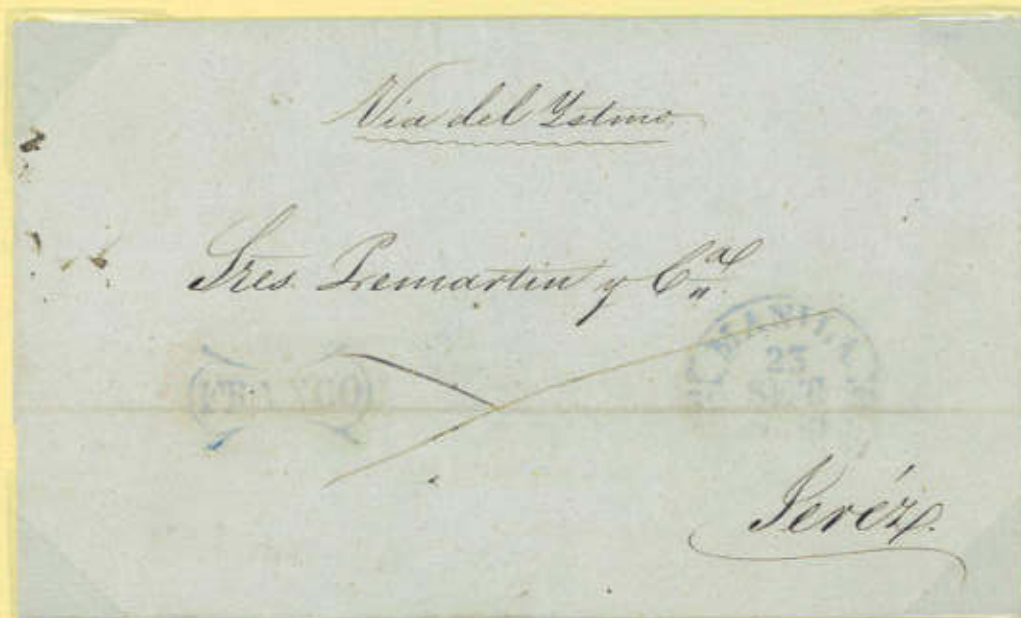 Via del Ystmo
Sres. Pemartin y Cª
(FRANCO)
MANILA
23
SET
Jeréz.